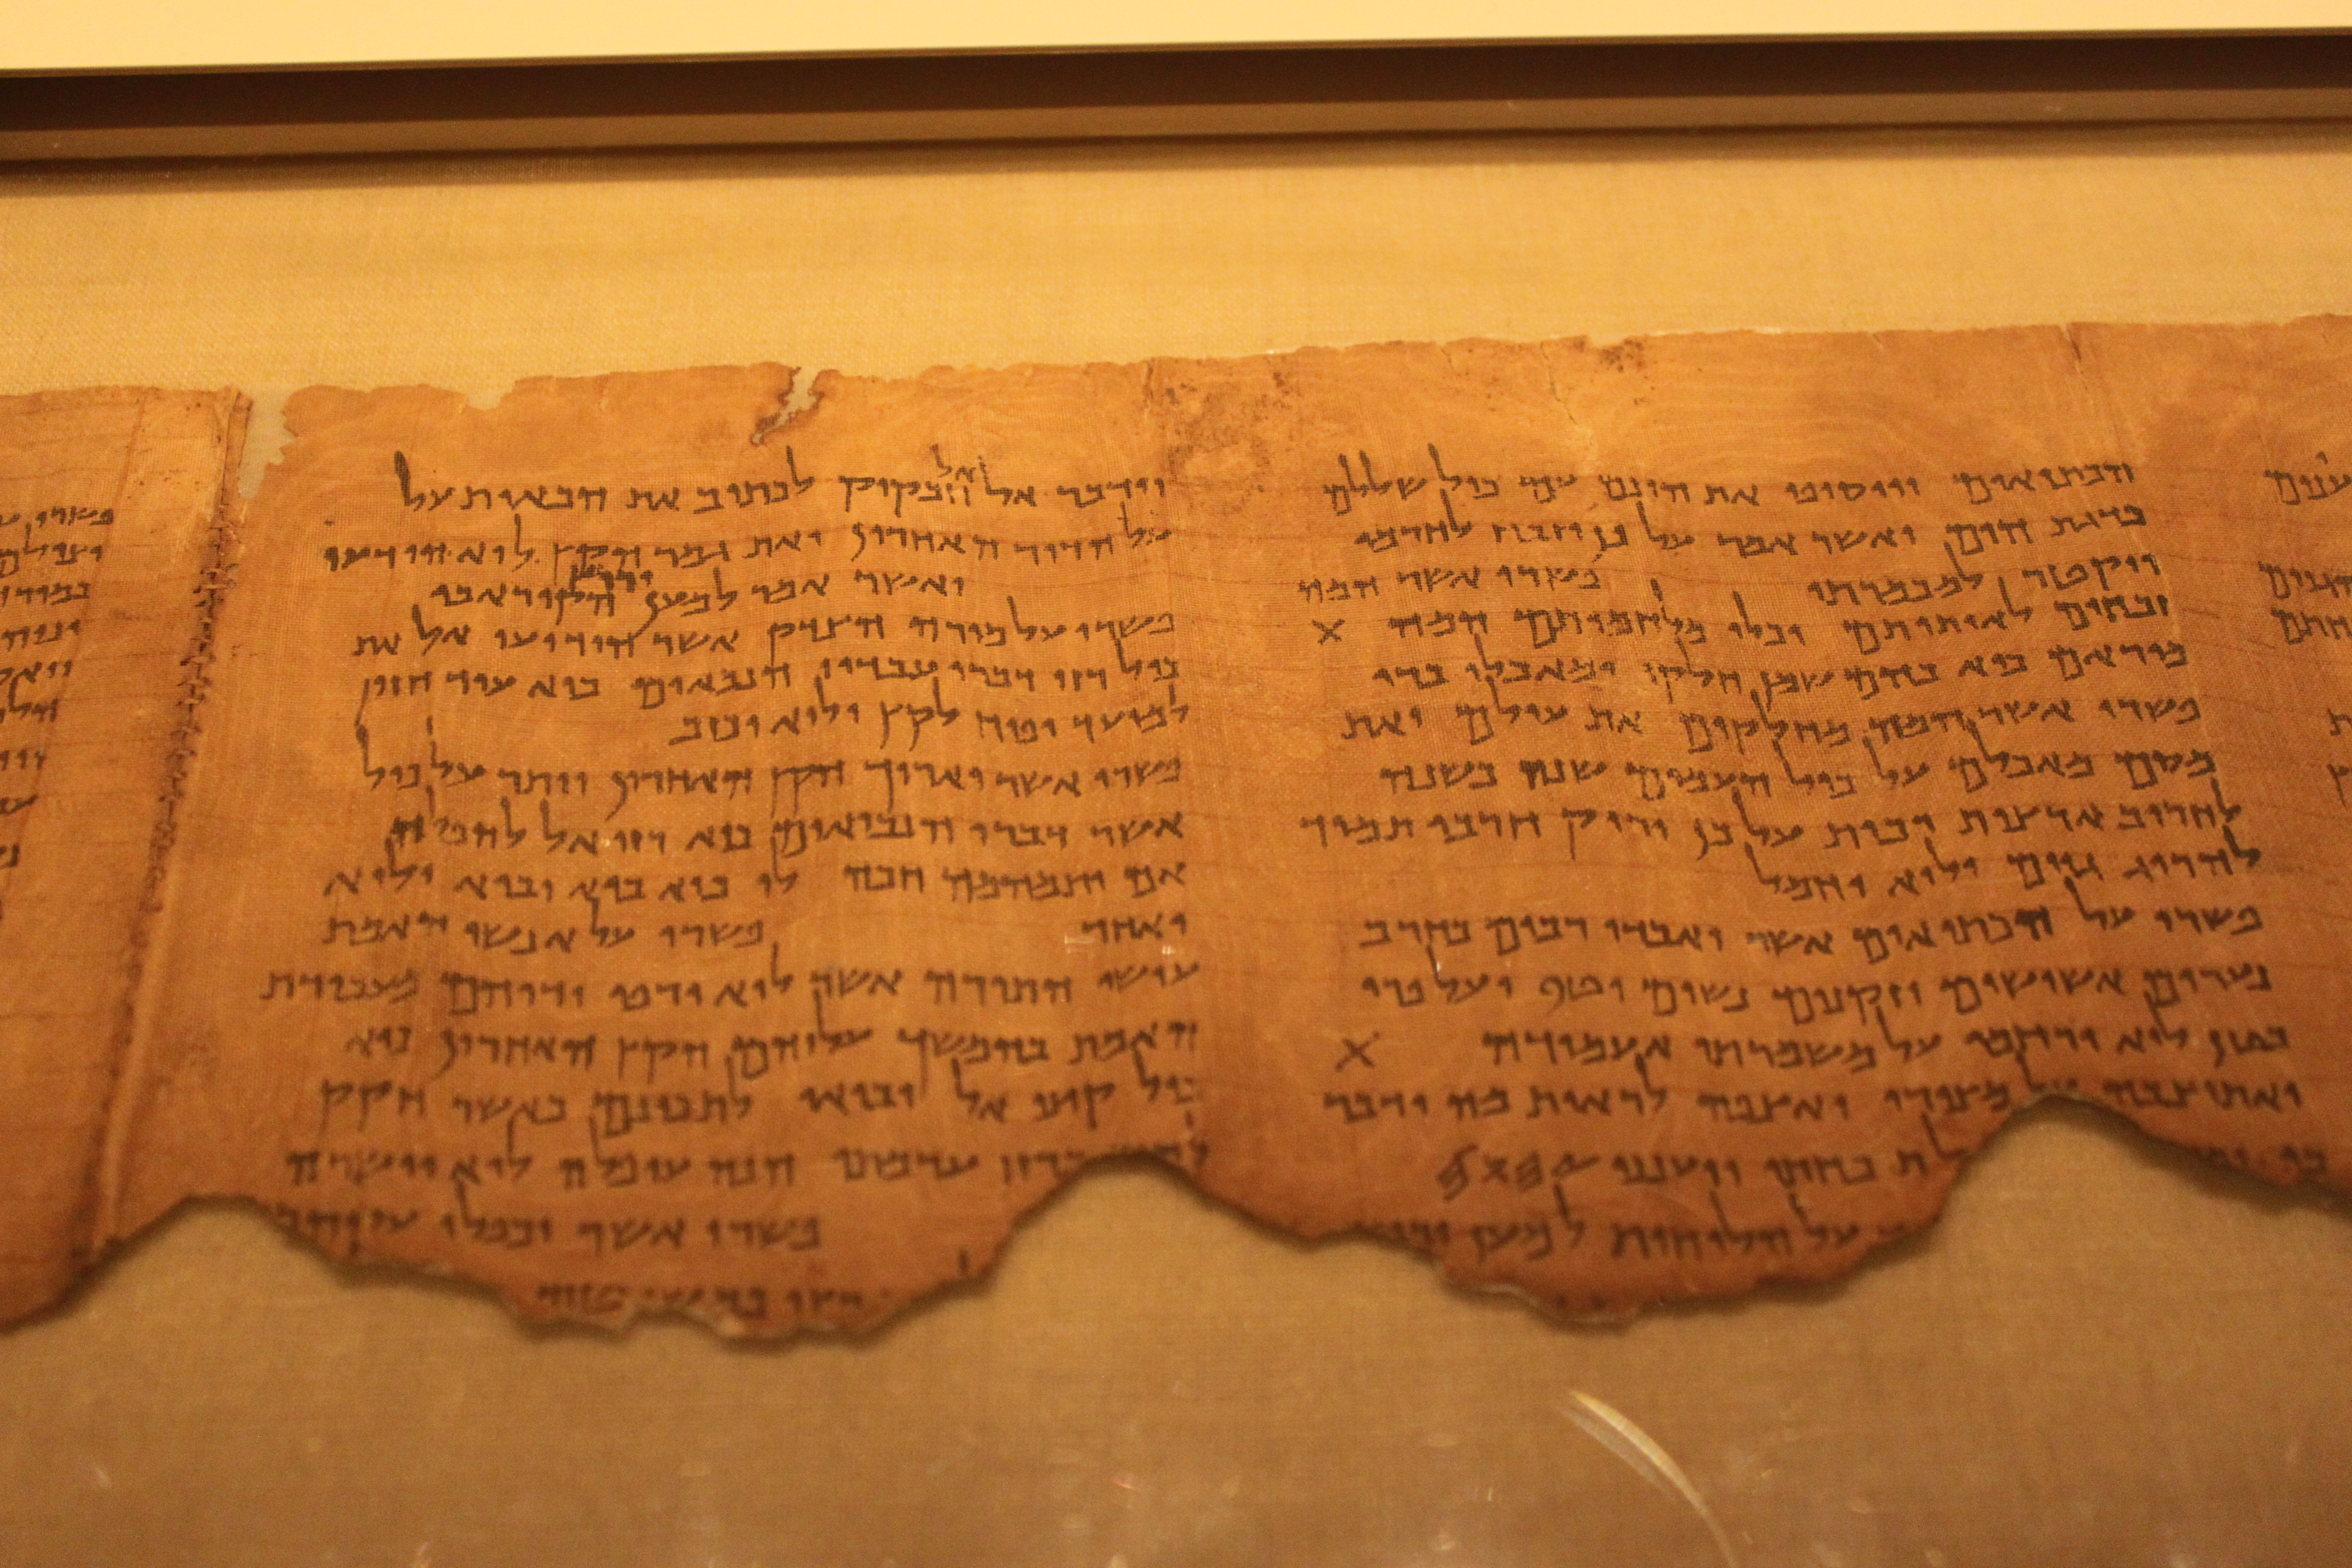 הכתיאים ויוסיפו את הונם עם כול שללם
כדגת הים ואשר אמר על כן יזבח לחרמו
ויקטר למכמרתו פשרו אשר המה
זבחים לאותותם וכלי מלחמותם המה X
מוראם כיא בהם שמן חלקו ומאכלו ברי
פשרו אשר המה מחלקים את עולם ואת
מסם מאכלם על כול העמים שנה בשנה
לחריב ארצות רבות על כן יריק חרבו תמיד
להרוג גוים ולוא יחמל
פשרו על הכתיאים אשר יאבדו רבים בחרב
נערים אשישים וזקנים נשים וטף ועל פרי
בטן לוא ירחמו על משמרתי אעמודה X
ואתיצבה על מצורי ואצפה לראות מה ידבר
בי ויענני 𐤉𐤄𐤅𐤄
על הלוחות למען
וידבר אל אל חבקוק לכתוב את הבאות על
על הדור האחרון ואת גמר הקץ לוא הודעו
ואשר אמר למען ירוץ הקורא בו
פשרו על מורה הצדק אשר הודיעו אל את
כול רזי דברי עבדיו הנבאים כיא עוד חזון
למועד יפח לקץ ולוא יכזב
פשרו אשר יארוך הקץ האחרון ויתר על כול
אשר דברו הנביאים כיא רזי אל להפלה
אם יתמהמה חכה לו כיא בוא יבוא ולוא
יאחר פשרו על אנשי האמת
עושי התורה אשר לוא ירפו ידיהם מעבודת
האמת בהמשך עליהם הקץ האחרון כיא
כול קיצי אל יבואו לתכונם כאשר חקק
ברזי ערמתו הנה עופלה לוא יושרה
פשרו אשר יכפלו עליהם